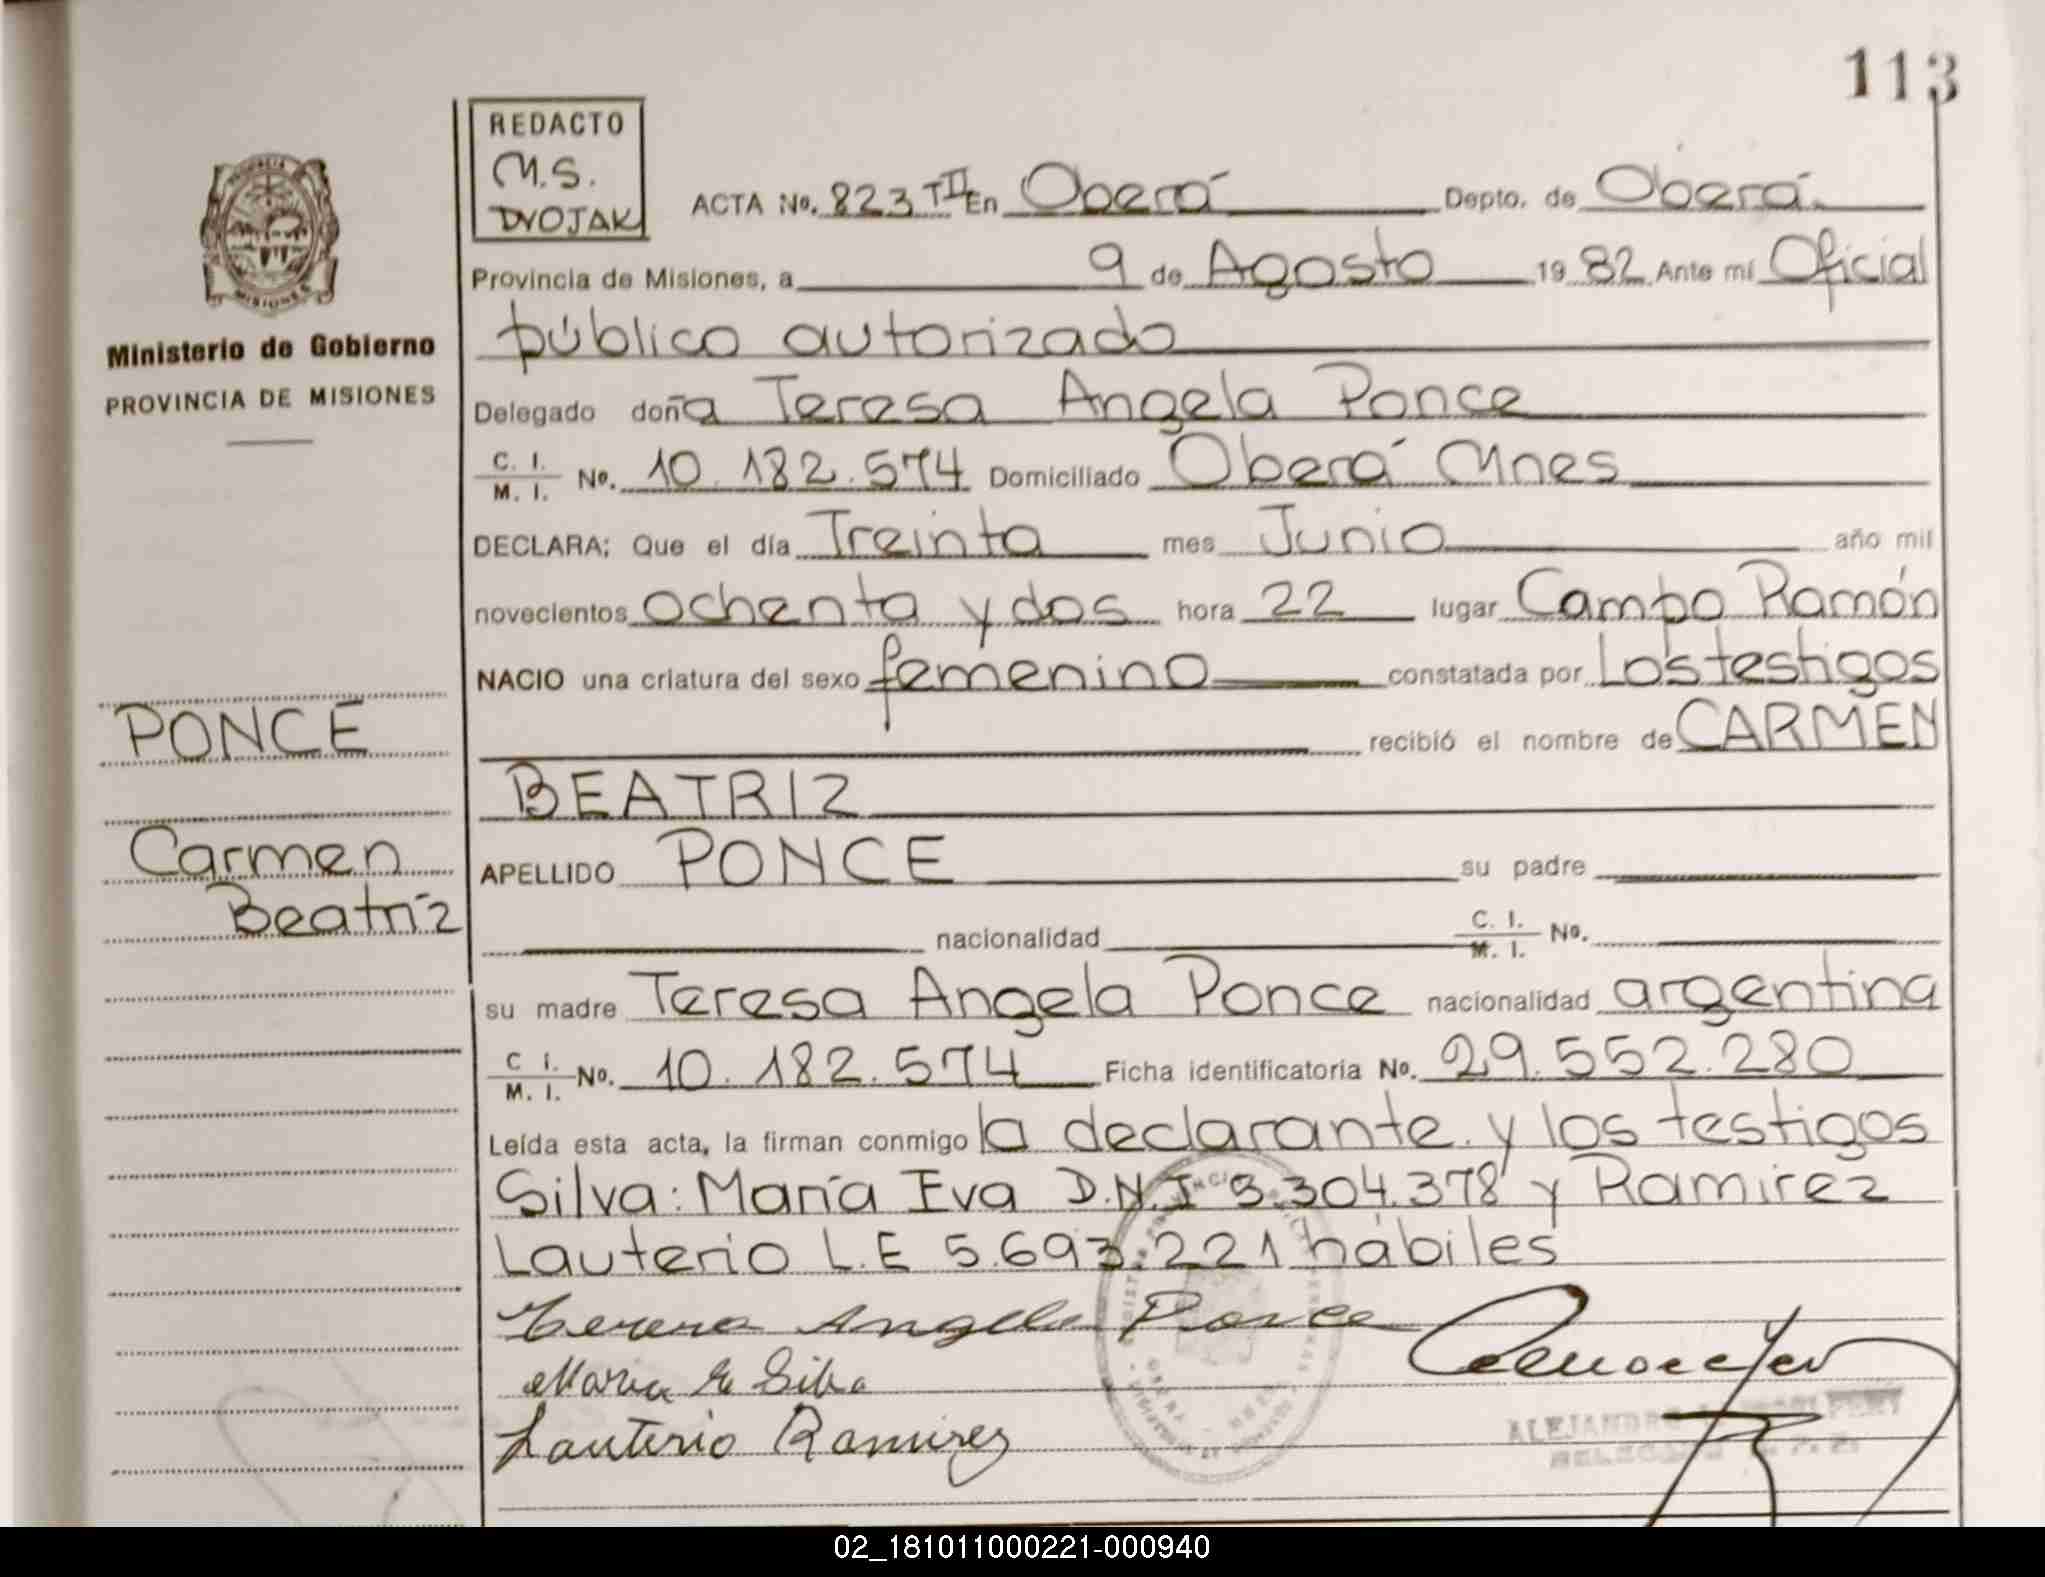 113
REDACTO
M.S.
DVOJAK
ACTA No. 823 TII En Oberá Depto. de Oberá
Provincia de Misiones, a 9 de Agosto 19 82 Ante mí Oficial
público autorizado
Delegado doña Teresa Angela Ponce
C. I. / M. I. No. 10.182.574 Domiciliado Oberá Mnes
DECLARA: Que el día Treinta mes Junio año mil
novecientos ochenta y dos hora 22 lugar Campo Ramón
NACIO una criatura del sexo femenino constatada por Los testigos
recibió el nombre de CARMEN
BEATRIZ
APELLIDO PONCE su padre
nacionalidad C. I. / M. I. No.
su madre Teresa Angela Ponce nacionalidad argentina
C I. / M. I. No. 10.182.574 Ficha identificatoria No. 29.552.280
Leída esta acta, la firman conmigo la declarante y los testigos
Silva: María Eva D.N.I 3.304.378 y Ramirez
Lauterio L.E 5.693.221 hábiles
Teresa Angela Ponce
Maria E Silva
Lauterio Ramirez
ALEJANDRO
PROVINCIA
MISIONES
Ministerio de Gobierno
PROVINCIA DE MISIONES
PONCE
Carmen
Beatriz
02_181011000221-000940